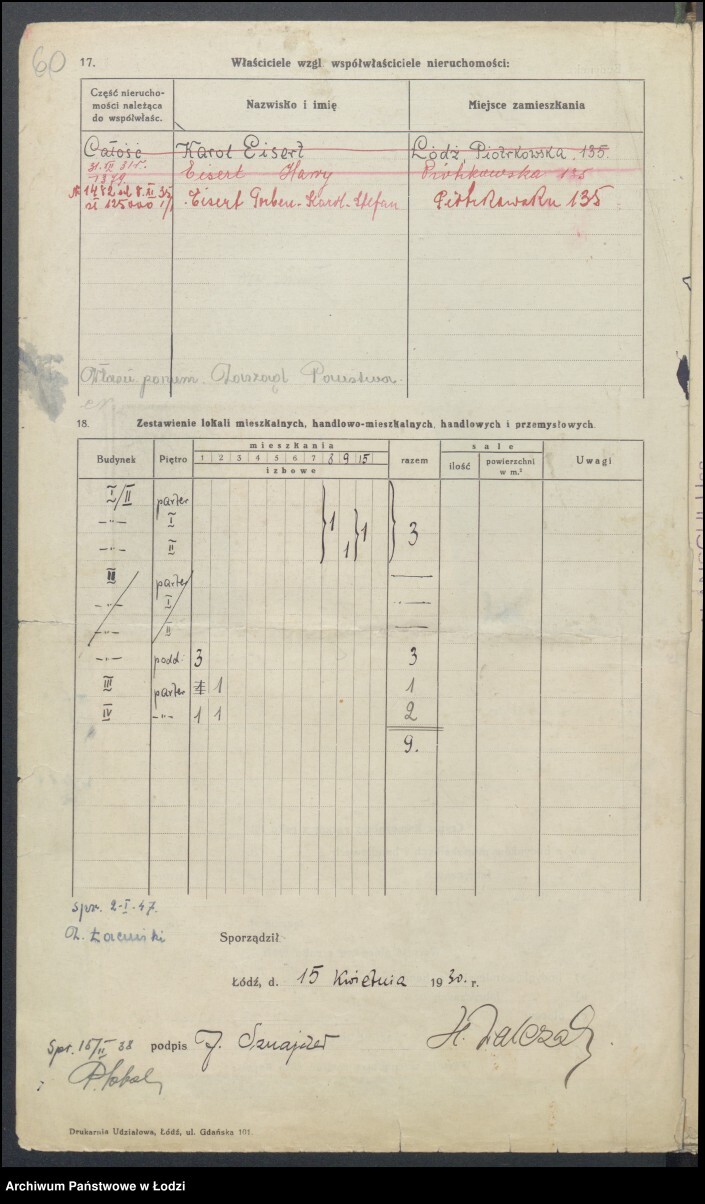 60
17. Właściciele wzgl. współwłaściciele nieruchomości:
Część nierucho-
mości należąca
do współwłaśc.
Nazwisko i imię
Miejsce zamieszkania
Całość Karol Eisert Łódź, Piotrkowska 135.
Eisert Harry Piotrkowska 135
1482 8. XI 35
zł 125000 1/1 Eisert Karol-Stefan Piotrkowska 135
Zarząd Państwa.
18. Zestawienie lokali mieszkalnych, handlowo-mieszkalnych, handlowych i przemysłowych.
Budynek Piętro mieszkania razem sale Uwagi
1 2 3 4 5 6 7 8 9 15
izbowe
ilość powierzchni
w m.²
I/II parter
—"— I 1 1 3
—"— II 1
II parter —
—"— I —
—"— II —
—"— podd. 3 3
III parter 1 1
IV —"— 1 1 2
9.
Spr. 2-I-47.
Sporządził
Łódź, d. 15 Kwietnia 1930. r.
Spr. 15/II 38 podpis J. Sznajder
Drukarnia Udziałowa, Łódź, ul. Gdańska 101.
Archiwum Państwowe w Łodzi